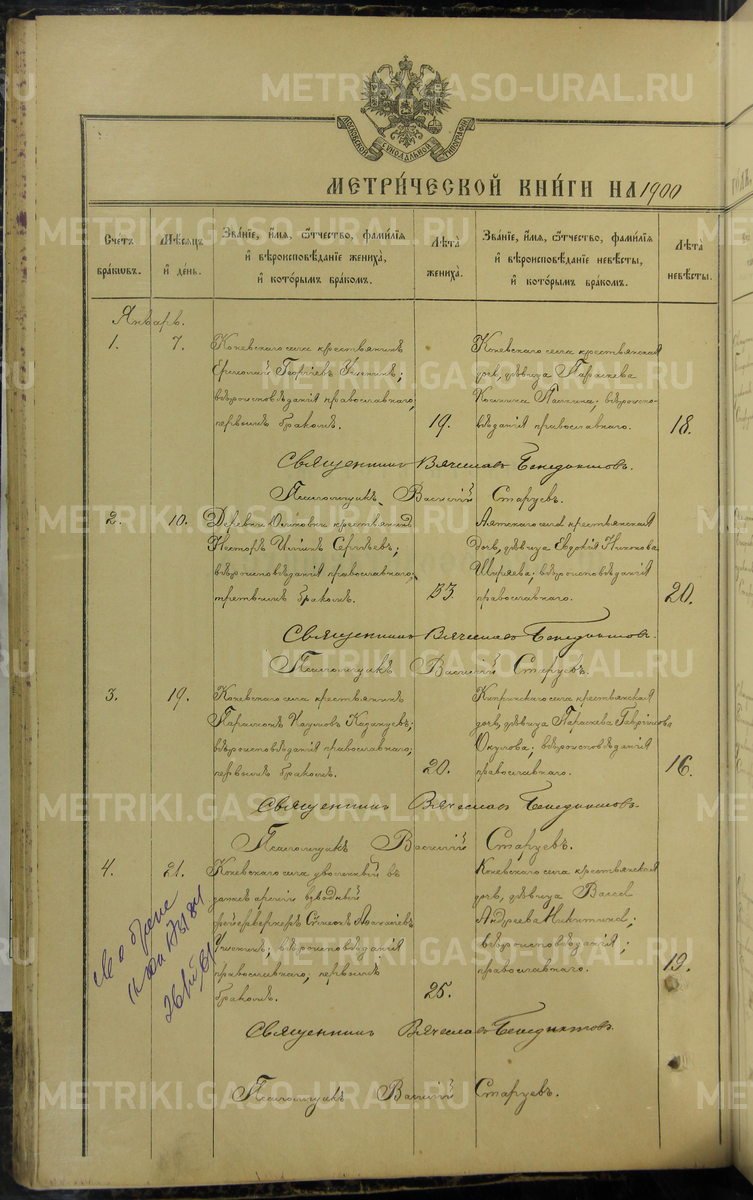 METRIKI.GASO-URAL.RU
МОСКОВСКОЙ СѴНОДАЛЬНОЙ ТИПОГРАФІИ
МЕТРИ́ЧЕСКОЙ КНИ́ГИ НА 1900
Сче́тъ бра́кωвъ.
Мѣ́сѧцъ и҆ де́нь.
Зва́нїе, и҆́мѧ, ѻ҆́тчество, фамѝлїѧ
и҆ вѣроисповѣ́данїе жениха̀,
и҆ кото́рымъ бра́комъ.
Лѣ́та
жениха̀.
Зва́нїе, и҆́мѧ, ѻ҆́тчество, фамѝлїѧ
и҆ вѣроисповѣ́данїе невѣ́сты,
и҆ кото́рымъ бра́комъ.
Лѣ́та
невѣ́сты.
Январь.
1.
7.
Коневскаго села крестьянинъ
Георгіевъ
вѣроисповѣданія православнаго;
первымъ бракомъ.
19.
Коневскаго села крестьянская
дочь, дѣвица Параскева
вѣроиспо-
вѣданія православнаго.
18.
Священникъ Вячеславъ Бенедиктовъ.
Псаломщикъ Василій Старцевъ.
2.
10.
Деревни крестьянинъ
Несторъ Сергѣевъ;
вѣроисповѣданія православнаго;
третьимъ бракомъ.
33.
Аятскаго села крестьянская
дочь, дѣвица Евдокія Никонова
Ширяева; вѣроисповѣданія
православнаго.
20.
Священникъ Вячеславъ Бенедиктовъ.
Псаломщикъ Василій Старцевъ.
3.
19.
Коневскаго села крестьянинъ
Парамонъ Наумовъ
вѣроисповѣданія православнаго;
первымъ бракомъ.
20.
села крестьянская
дочь, дѣвица Параскева Гавріилова
Окулова; вѣроисповѣданія
православнаго.
16.
Священникъ Вячеславъ Бенедиктовъ.
Псаломщикъ Василій Старцевъ.
4.
21.
Коневскаго села уволенный въ
запасъ арміи взводный
фейерверкеръ
вѣроисповѣданія
православнаго; первымъ
бракомъ.
25.
Коневскаго села крестьянская
дочь, дѣвица
Андреева Никитина;
вѣроисповѣданія
православнаго.
19.
о браке
Священникъ Вячеславъ Бенедиктовъ.
Псаломщикъ Василій Старцевъ.